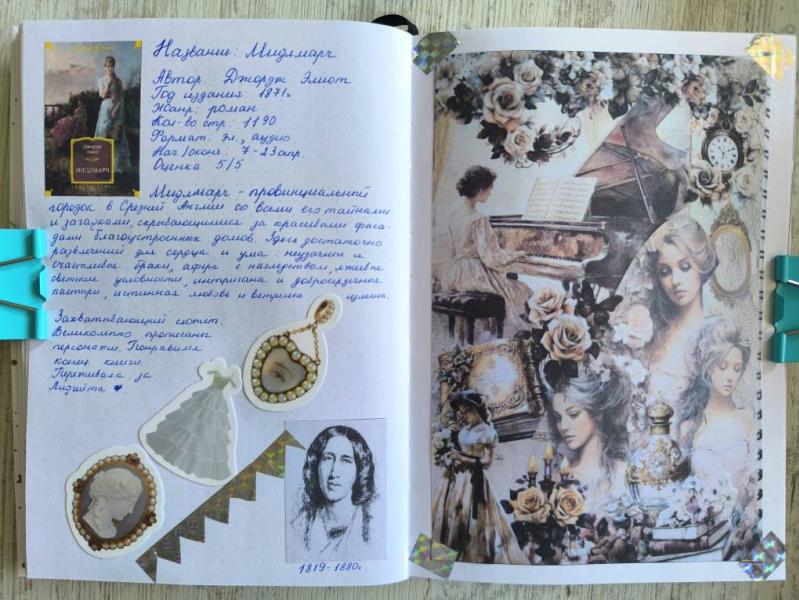 Название: Мидлмарч
Автор: Джордж Элиот
Год издания: 1871г
Жанр: роман
Кол-во стр: 1190
Формат: эл., аудио
Нач/оконч: 7-23 апр.
Оценка 5/5
Джордж
Элиот
МИДЛМАРЧ
Мидлмарч - провинциальный
городок в Средней Англии со всеми его тайнами
и загадками, скрывающимися за красивыми фаса-
дами благоустроенных домов. Здесь достаточно
развлечений для сердца и ума: неудачные и
счастливые браки, афера с наследством, лживые
светские условности, интриганы и добросердечные
пасторы, истинная любовь и ветреные
Захватывающий сюжет.
Великолепно прописаны
персонажи. Понравился
конец книги.
Переживала за
Лидгейта ♥.
1819-1880г.